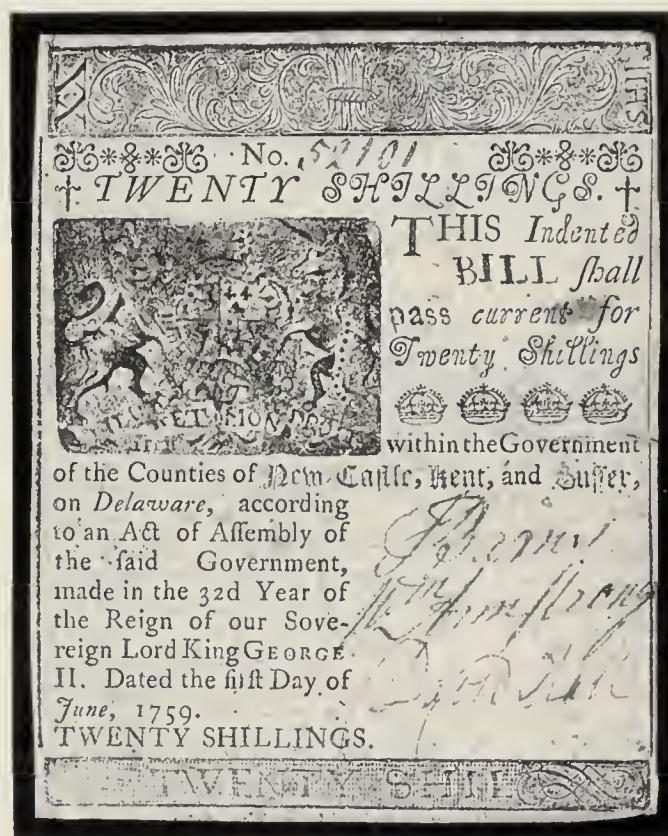 No. 52101
TWENTY SHILLINGS.
THIS Indented
BILL ſhall
pass current for
Twenty Shillings
within the Government
of the Counties of New-Caſtle, Kent, and Suſſex,
on Delaware, according
to an Act of Aſſembly of
the ſaid Government,
made in the 32d Year of
the Reign of our Sove-
reign Lord King GEORGE
II. Dated the firſt Day of
June, 1759.
TWENTY SHILLINGS.
Wm Armſtrong
TWENTY SHIL